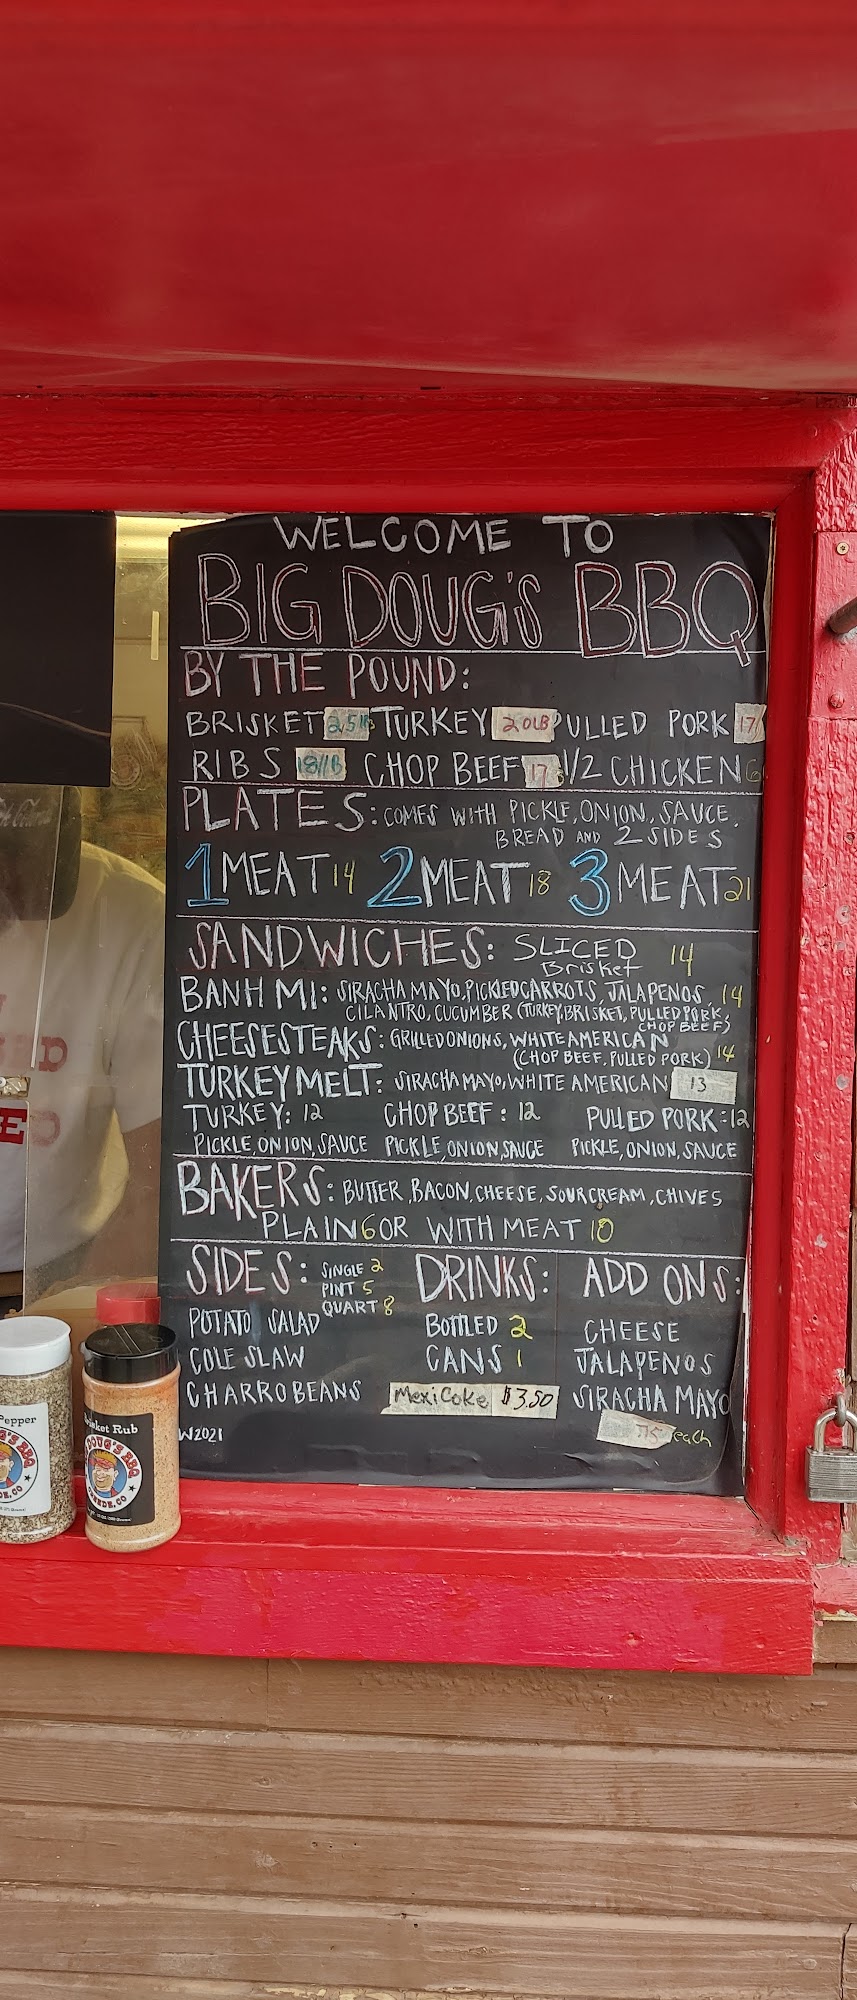 WELCOME TO
BIG DOUG'S BBQ
BY THE POUND:
BRISKET 25lb TURKEY 20LB PULLED PORK 17
RIBS 18/lB CHOP BEEF 17 1/2 CHICKEN 6
PLATES: COMES WITH PICKLE, ONION, SAUCE,
BREAD AND 2 SIDES
1 MEAT 14 2 MEAT 18 3 MEAT 21
SANDWICHES: SLICED 14
Brisket
BANH MI: SIRACHA MAYO, PICKLED CARROTS, JALAPENOS, 14
CILANTRO, CUCUMBER (TURKEY, BRISKET, PULLED PORK,
CHOP BEEF)
CHEESESTEAKS: GRILLED ONIONS, WHITE AMERICAN
(CHOP BEEF, PULLED PORK) 14
TURKEY MELT: SIRACHA MAYO, WHITE AMERICAN 13
TURKEY: 12 CHOP BEEF: 12 PULLED PORK: 12
PICKLE, ONION, SAUCE PICKLE, ONION, SAUCE PICKLE, ONION, SAUCE
BAKERS: BUTTER, BACON, CHEESE, SOUR CREAM, CHIVES
PLAIN 6 OR WITH MEAT 10
SIDES: SINGLE 2 DRINKS: ADD ONS:
PINT 5
QUART 8
POTATO SALAD BOTTLED 2 CHEESE
COLE SLAW CANS 1 JALAPENOS
CHARRO BEANS Mexi Coke $3.50 SIRACHA MAYO
.75 each
W2021
Pepper
Brisket Rub
DOUG'S BBQ